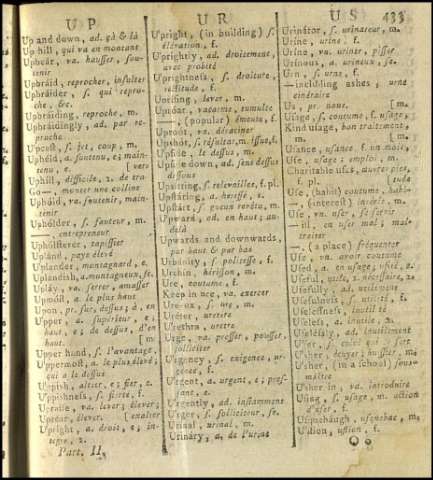 UP
UR
US
433
Up and down, ad. çà & là
Up hill, qui va en montant
Upbear, va. hausser, sou-
tenir
Upbraid, reprocher, insulter
Upbraider, s. qui repro-
che, &c.
Upbraiding, reproche, m.
Upbraidingly, ad. par re-
proche
Upcast, s. jet, coup, m.
Upheld, a. soutenu, e; main-
tenu, e [vers
Uphill, difficile, 2. de tra
Go—, monter une colline
Uphold, va. soutenir, main-
tenir
Upholder, s. fauteur, m.
— entrepreneur
Upholsterer, tapissier
Upland, pays élevé
Uplander, montagnard, e.
Uplandish, a. montagneux, se.
Uplay, va. serrer, amasser
Upmost, a. le plus haut
Upon, pr. sur, dessus; à, en
Upper, a. supérieur, e;
haut, e; de dessus, d'en
haut [m.
Upper hand, s. l'avantage,
Uppermost, a. le plus élevé;
qui a le dessus
Uppish, altier, e; fier, e.
Uppishness, s. fierté, f.
Upraise, va. lever; élever
Uprear, élever [exalter
Upright, a. droit, e; in-
tegre, 2.
Part. II.
Upright, (in building) s.
élévation, f.
Uprightly, ad. droitement,
avec probité
Uprightness, s. droiture,
rectitude, f.
Uprising, lever, m.
Uproar, vacarme, tumulte
— (popular) émeute, f.
Uproot, va. déraciner
Upshot, s. résultat, m. issue, f.
Upside, le dessus, m.
Upside down, ad. sens dessus
dessous
Upsitting, s. relevailles, f. pl.
Upstaring, a. hérissé, 2.
Upstart, s. gueux revêtu, m.
Upward, ad. en haut; au-
delà
Upwards and downwards,
par haut & par bas
Urbanity, s. politesse, f.
Urchin, hérisson, m.
Ure, coutume, f.
Keep in ure, va. exercer
Ure-ox, s. ure, m.
Ureter, uretere
Urethra, uretre
Urge, va. presser, pousser,
solliciter
Urgency, s. exigence, ur-
gence, f.
Urgent, a. urgent, e; pres-
sant, e.
Urgently, ad. instamment
Urger, s. solliciteur, se.
Urinal, urinal, m.
Urinary, a. de l'urine
Urinator, s. urinateur, m.
Urine, urine, f.
Urine, vn. uriner, pisser
Urinous, a. urineux, se.
Urn, s. urne, f.
—including ashes, urne
cinéraire
Us, pr. nous. [m.
Usage, s. coutume, f. usage,
Kind usage, bon traitement,
m.
Usance, usance, f. un mois,
Use, usage; emploi, m.
Charitable uses, œuvres pies,
f. pl. [tude
Use, (habit) coutume, habi-
— (interest) intérêt, m.
Use, vn. user, se servir
—ill, en user mal; mal-
traiter
—, (a place) fréquenter
Use, vn. avoir coutume
Used, a. en usage; usité, 2.
Useful, utile, 2. nécessaire, 2.
Usefully, ad. utilement
Usefulness, s. utilité, f.
Uselessness, inutilité
Useless, a. inutile, 2.
Uselessly, ad. inutilement
User, s. celui qui se sert
Usher, écuyer; huissier, m.
Usher, (in a school) sous-
maître
Usher in, va. introduire
Using, s. usage, m. action
d'user, f.
Usquebaugh, usquebac, m.
Ustion, ustion, f.
Oo